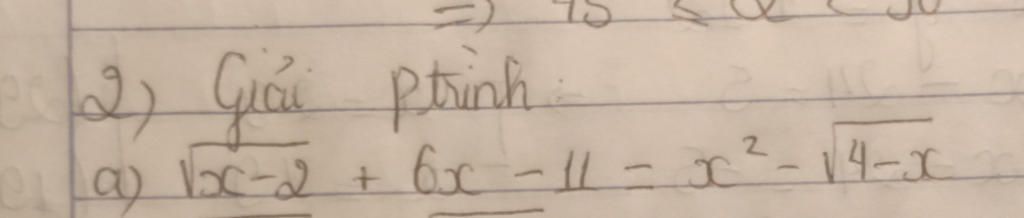 2) Giải ptrình:
a) √(x-2) + 6x - 11 = x² - √(4-x)